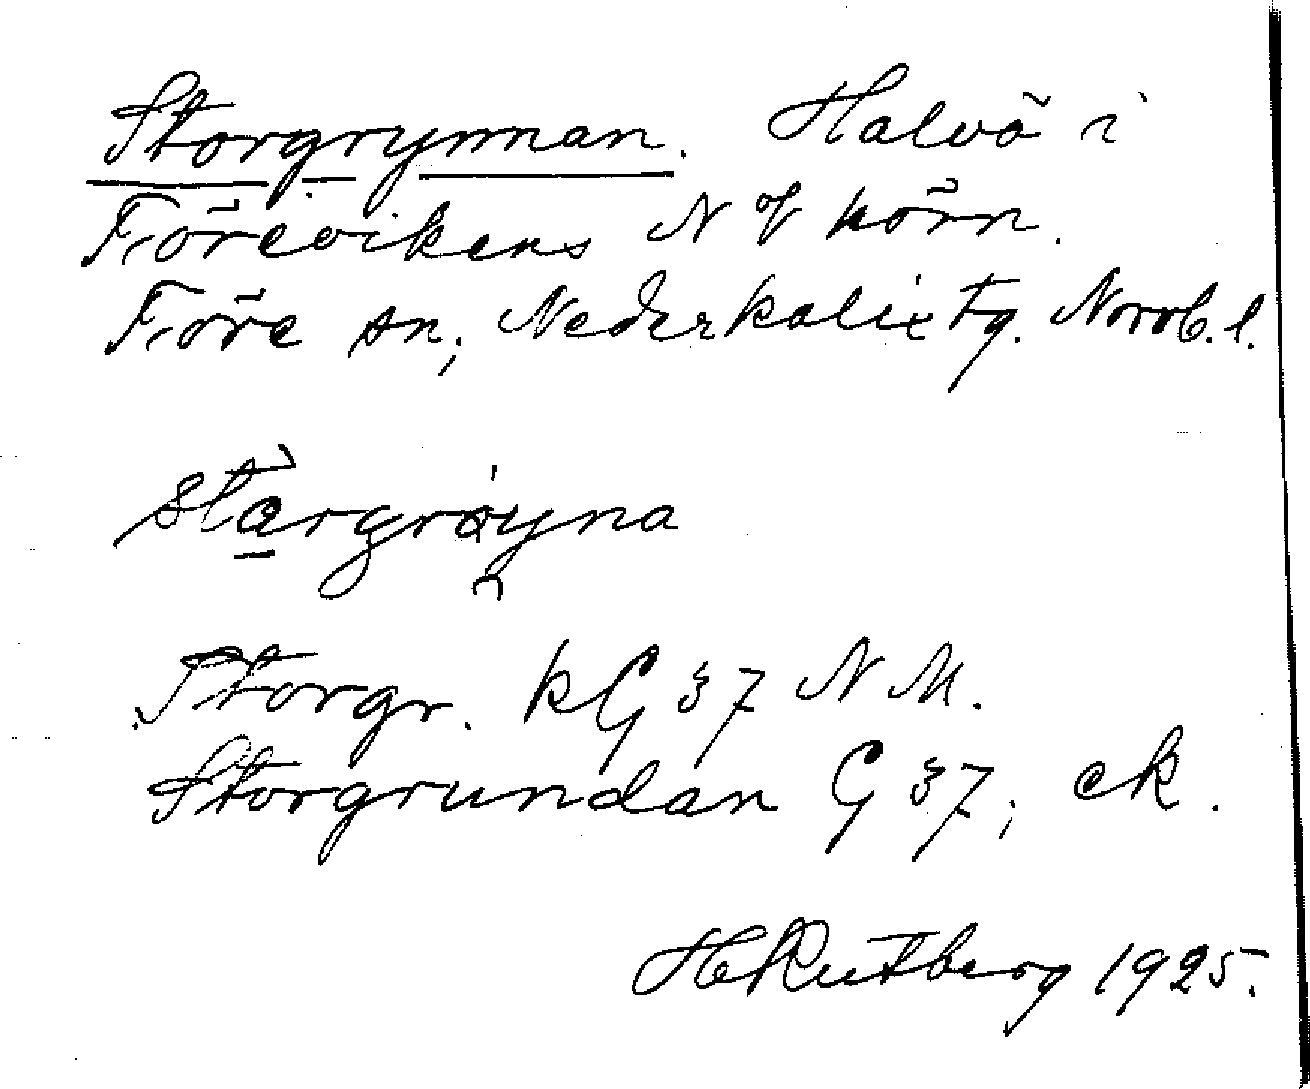 Storgrynnan. Halvö i
Förevikens NV hörn.
Före sn, Nederkalix tg. Norrb. l.
Storgr. kG 37 NM.
Storgrundan G 37, ek.
H Rutberg 1925.